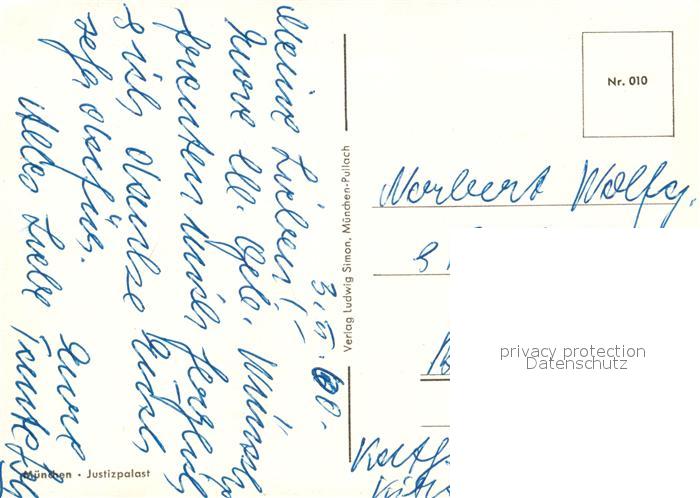 3. 5. 60.
Meine Lieben!
Eure lb. Geb. Wünsche
freuten mich herzlich
& ich danke Euch
sehr dafür.
Alles Liebe Eure
Verlag Ludwig Simon, München-Pullach
München · Justizpalast
Nr. 010
Norbert Wolfg.
privacy protection
Datenschutz